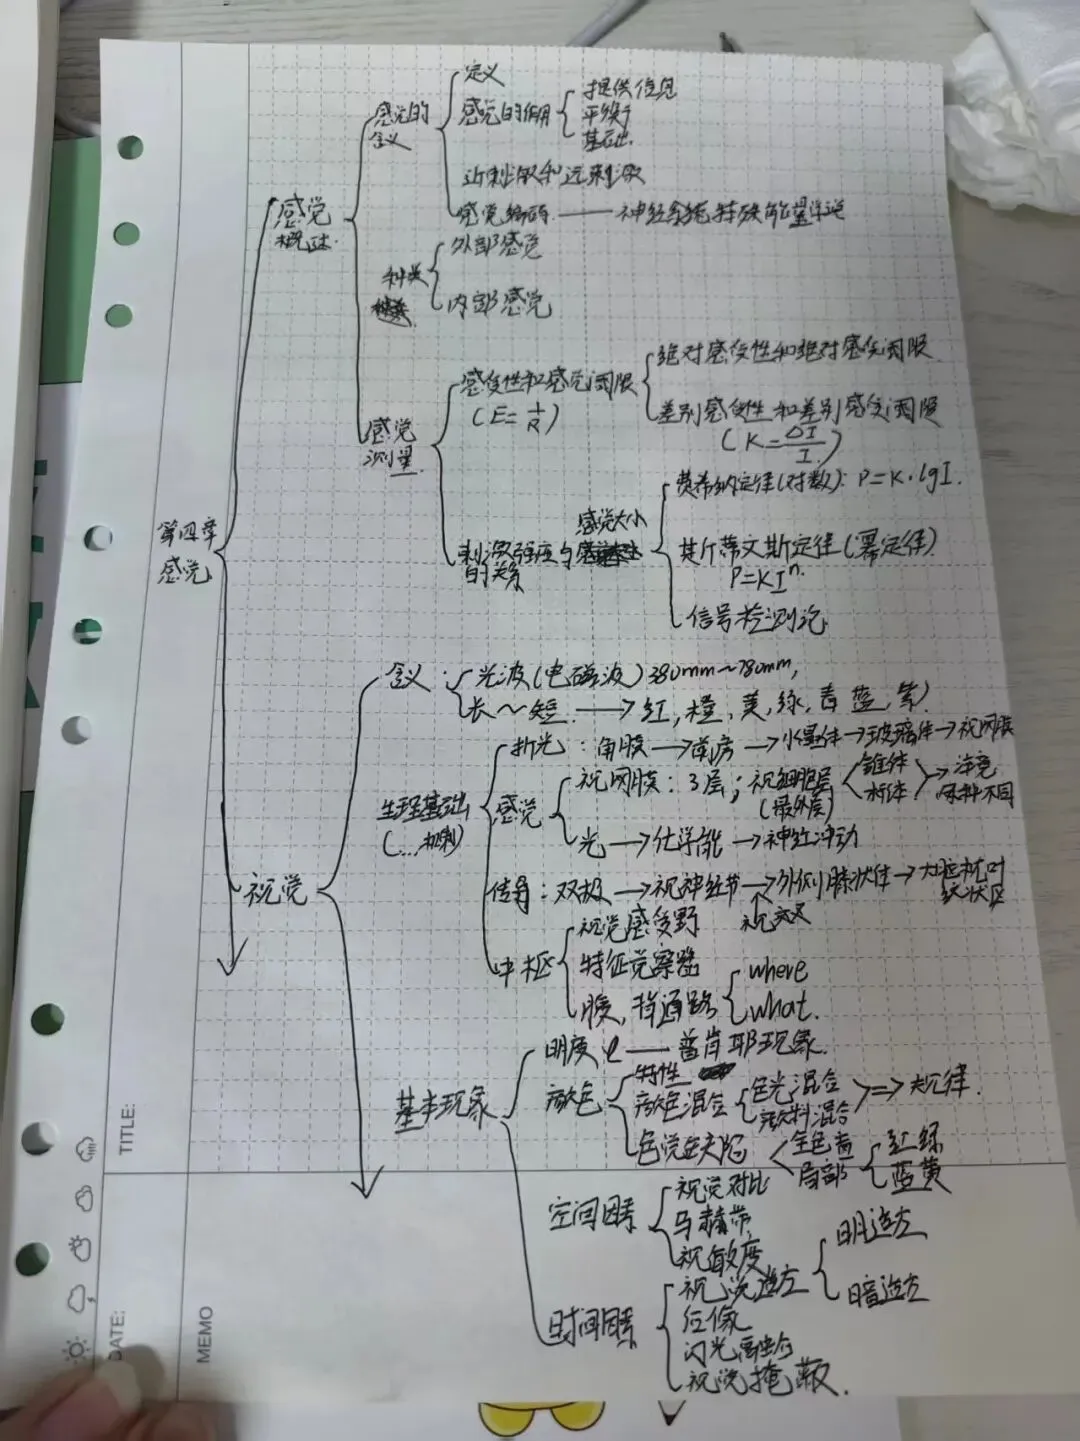 定义
感觉的
含义
感觉的作用
提供信息
平衡
基础
近刺激和远刺激
感觉编码 —— 神经特殊能量学说
感觉
概述
种类
外部感觉
内部感觉
感觉
测量
感受性和感觉阈限
(E=1/R)
绝对感受性和绝对感觉阈限
差别感受性和差别感觉阈限
(K=ΔI/I)
刺激强度与感觉大小
的关系
费希纳定律(对数): P=K·lgI.
斯蒂文斯定律(幂定律)
P=KIⁿ.
信号检测论
第四章
感觉
视觉
含义:
光波(电磁波)380mm~780mm,
长~短 → 红,橙,黄,绿,青 蓝,紫)
生理基础
(…机制)
折光: 角膜→前房→小晶体→玻璃体→视网膜
感觉
视网膜: 3层; 视细胞层
(最外层)
锥体
杆体
种不同
光→化学能→神经冲动
传导: 双极→视神经节→外侧膝状体→大脑枕叶
纹状区
视交叉
中枢
视觉感受野
特征觉察器
腹,背通路
where
what.
基本现象
明度 —— 普肯耶现象.
颜色
特性
颜色混合
色光混合
颜料混合
=> 规律.
色觉缺陷
全色盲
局部
红绿
蓝黄
空间因素
视觉对比
马赫带
视敏度
时间因素
视觉适应
明适应
暗适应
后像
闪光融合
视觉掩蔽.
TITLE:
DATE:
MEMO